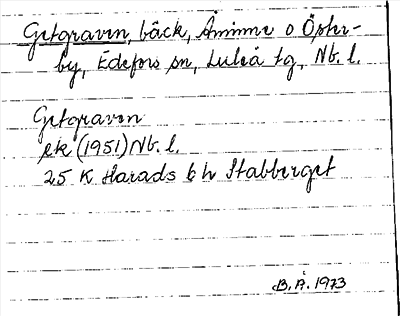 Getgraven, bäck, Åminne o Öster-
by, Edefors sn, Luleå tg, Nb. l.
Getgraven
ek (1951) Nb. l.
25 K Harads b h Stabberget
B. Å. 1973